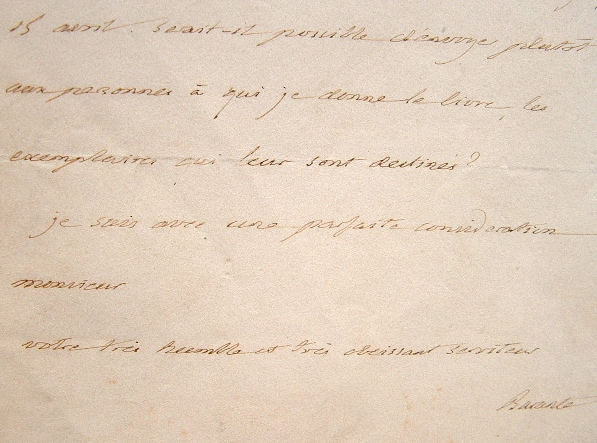 15 avril. serait-il possible d'envoyer plutôt
aux personnes à qui je donne le livre, les
exemplaires qui leur sont destinés?
je suis avec une parfaite considération
monsieur
votre très humble et très obeissant serviteur
Barante